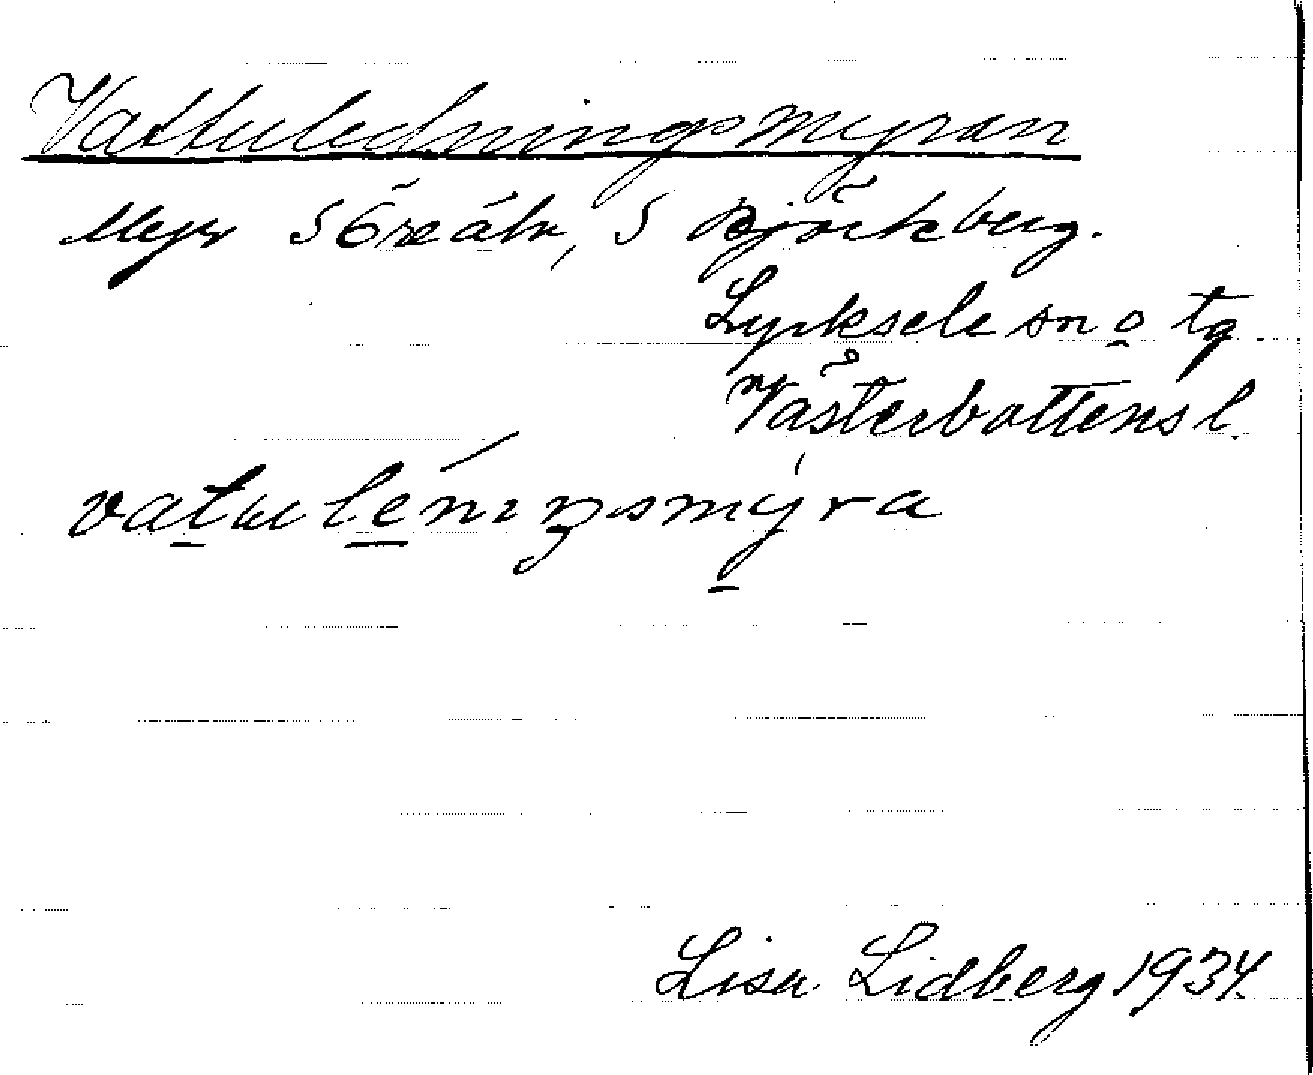 Vattuledningsmyran
Myr S Öreälv, S Björkberg.
Lycksele sn o tg
Västerbottens l.
vatuléniŋsmy̍ra
Lisa Lidberg 1934.